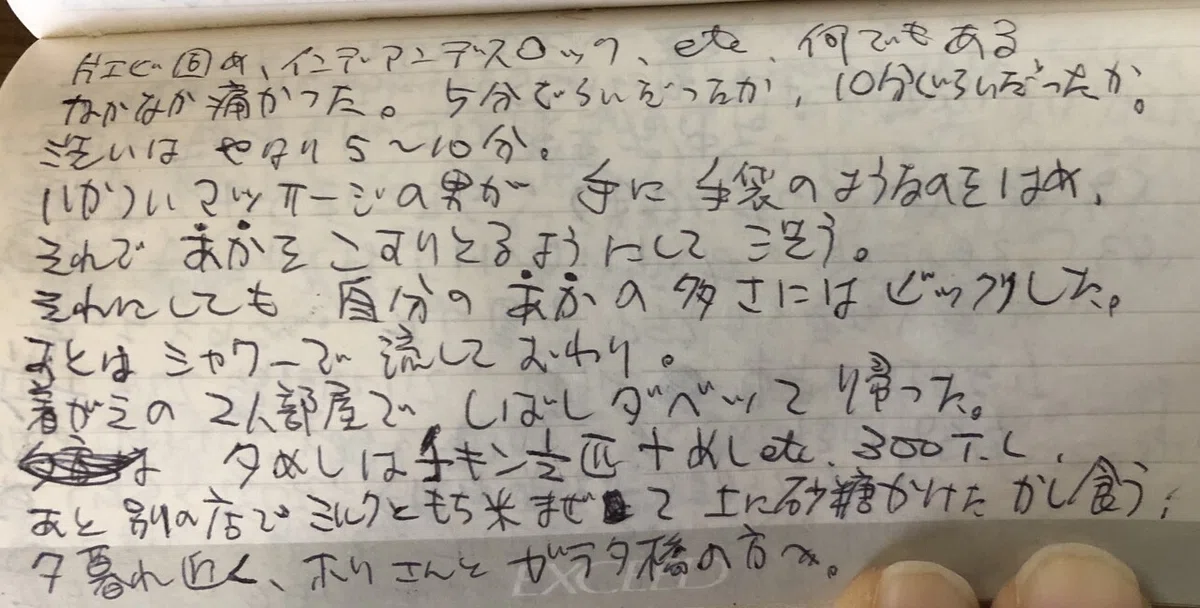 片エビ固め、インディアンデスロック、etc、何でもある
なかなか痛かった。5分ぐらいだったか、10分ぐらいだったか。
洗いは やはり5〜10分。
いかついマッサージの男が 手に手袋のようなのをはめ、
それで あかをこすりとるようにして洗う。
それにしても 自分の あかの多さには ビックリした。
あとはシャワーで 流して おわり。
着がえの 2人部屋で しばし ダベッて 帰った。
は 夕めしはチキン1/2匹+めし etc. 300T.L.
あと 別の店で ミルクともち米まぜて 上に砂糖かけた かし食う。
夕暮れ近く、ホリさんと ガラタ橋の方へ。
EXCEED